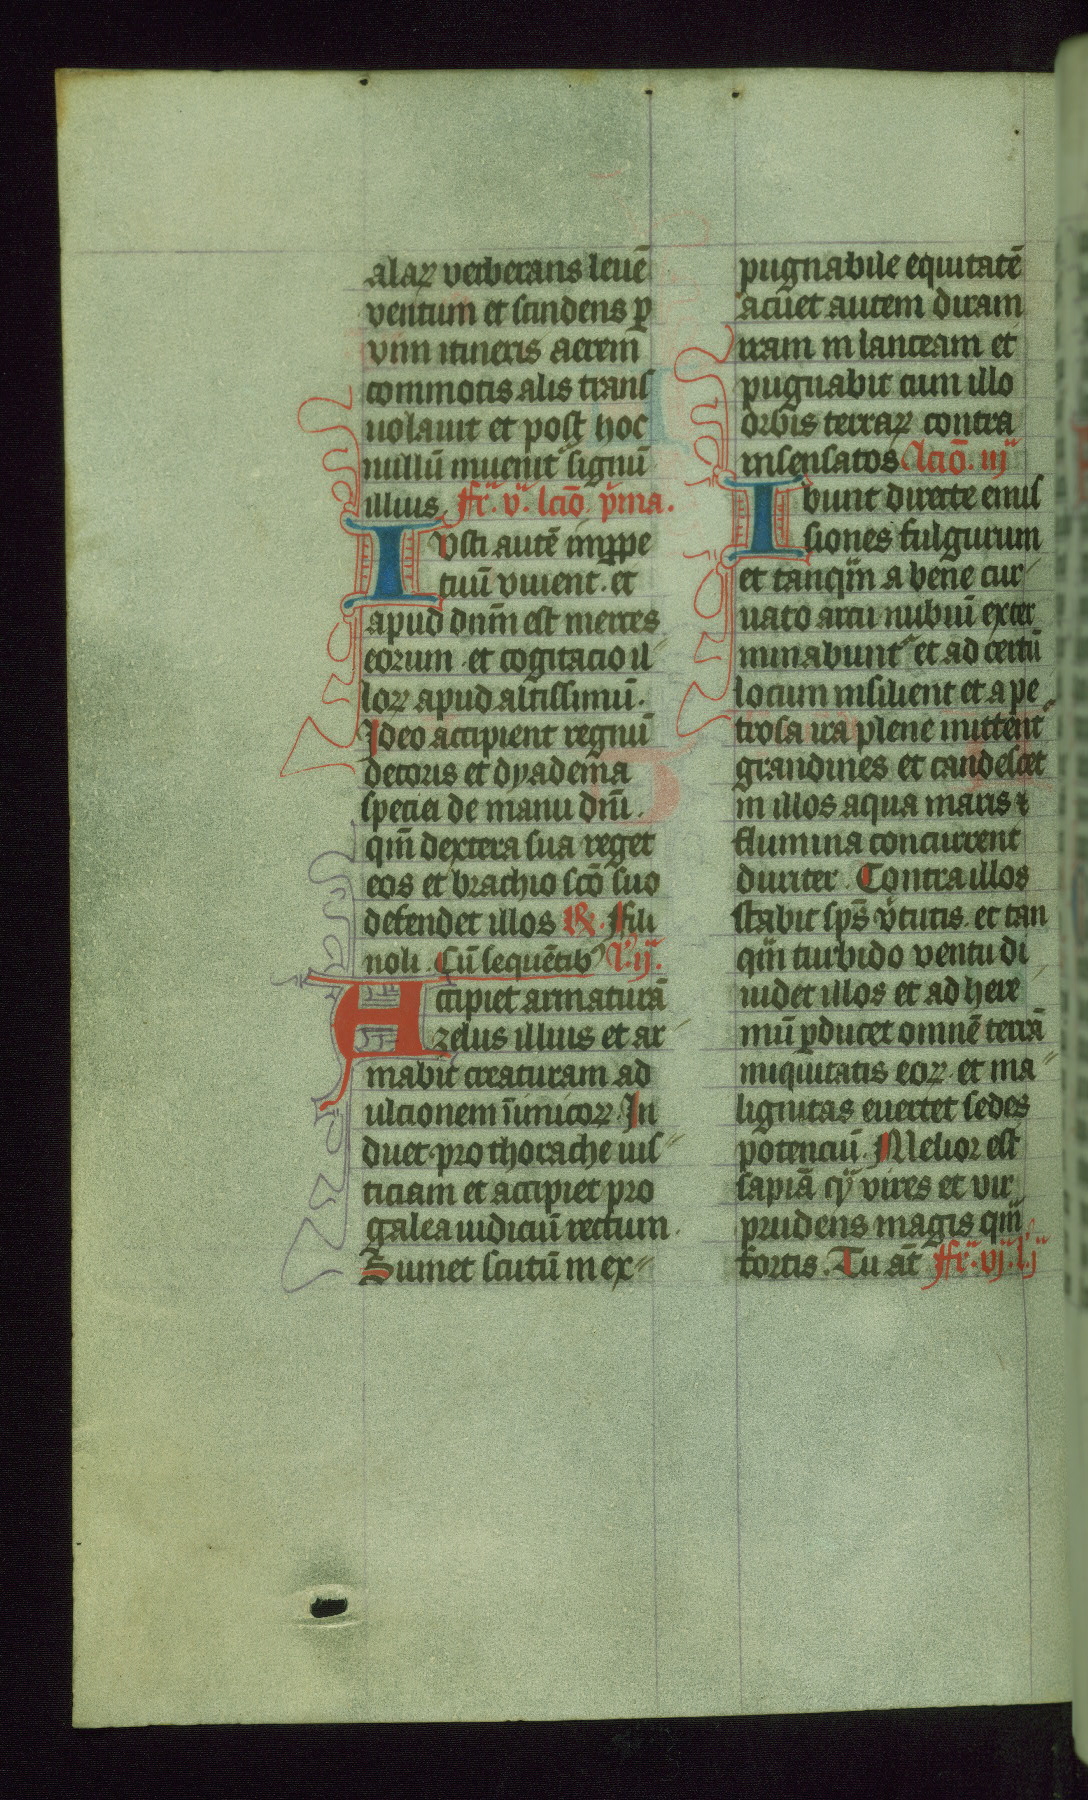 alaꝝ verberans leuē
ventum et scindens ꝑ
vim itineris aerem
commotis alis trans
uolauit et post hoc
nullū inuenit᷑ signū
illius. ffr̄. v. lcō. p̄ma.
Iusti autē inꝑpe
tuū viuent. et
apud dnm̄ est merces
eorum et cogitacio il
loꝝ apud altissimū.
Ideo accipient regnū
decoris et dyadema
speciei de manu dnī.
qm̄ dextera sua reget
eos et brachio scō suo
defendet illos ℞. ffili
noli. Cū sequētibꝰ l. ij.
Accipiet armaturā
zelus illius et ar
mabit creaturam ad
ulcionem īimicoꝝ. In
duet pro thorache ius
ticiam et accipiet pro
galea iudiciū rectum.
Sumet scutū in ex
pugnabile equitatē
acuet autem duram
iram in lanceam et
pugnabit cum illo
orbis terraꝝ contra
insensatos lciō. iij
Ibunt directe emis
siones fulgurum
et tanqm̄ a bene cur
uato arcu nubiū exter
minabunt᷑ et ad certū
locum insilient et a pe
trosa ira plene mittent᷑
grandines et candescet
in illos aqua maris ⁊
flumina concurrent
duriter. Contra illos
stabit sp̄s v̄tutis et tan
qm̄ turbido ventu di
uidet illos et ad here
mū ꝑducet omnē terrā
iniquitatis eoꝝ et ma
lignitas euertet sedes
potenciū. Melior est
sapiā qͣ vires et vir
prudens magis qm̄
fortis. Tu aūt ffr̄. vj. l. j